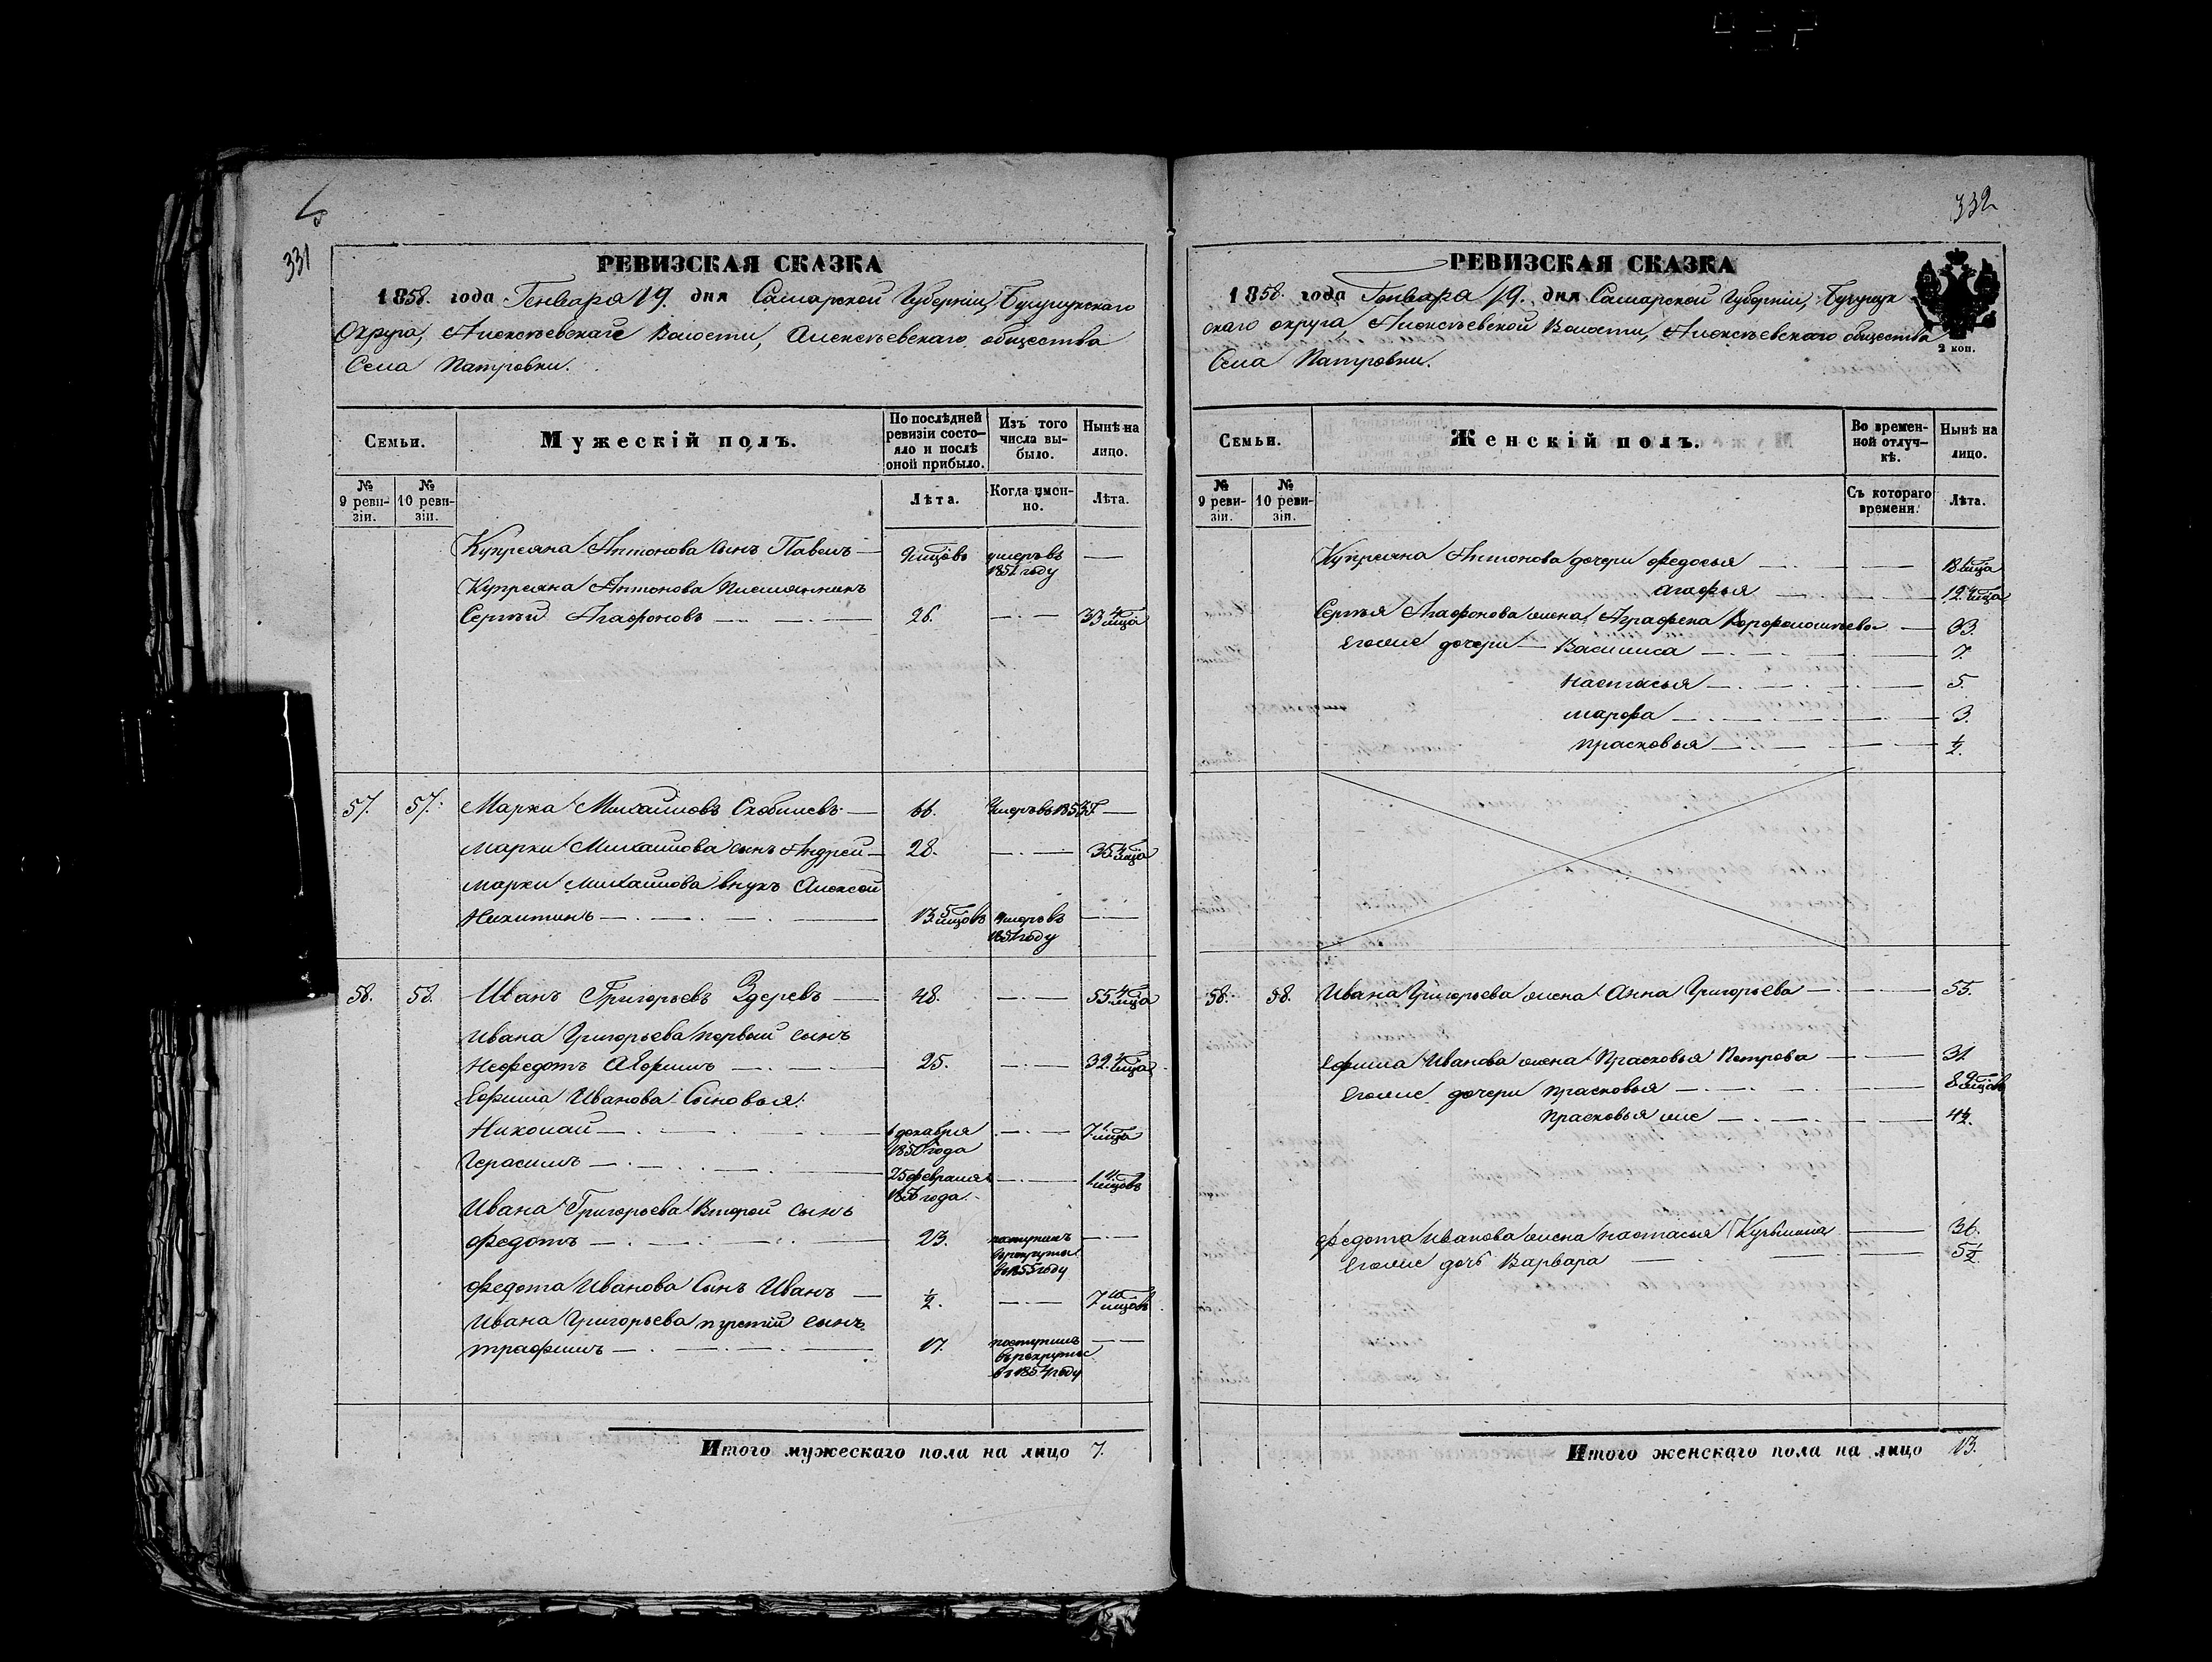 331
РЕВИЗСКАЯ СКАЗКА
1858. года Генваря 19. дня Самарской Губерніи, Бузулукскаго
Округа, Алексѣевскаге Волости, Алексѣевскаго общества
Села Патровки.
Семьи.
Мужескій полъ.
По послѣдней ревизіи состо-
яло и послѣ
оной прибыло.
Изъ того
числа вы-
было.
Нынѣ на
лицо.
№
9 реви-
зіи.
№
10 реви-
зіи.
Лѣта.
Когда имен-
но.
Лѣта.
Купреяна Антонова сынъ Павелъ — умеръ въ —
1851 году
Купреяна Антонова племянникъ
Сергѣй Агафоновъ — 26. — 33
57. 57. Марка Михайловъ — 66. —
Марки Михайлова сынъ Андрей — 28. —
Марки Михайлова внукъ Алексей
Никитинъ — 13 умеръ въ —
1851 году
58. 58. Иванъ Григорьевъ Здеревъ — 48. — 55
Ивана Григорьева первый сынъ
Нефедотъ аЕфимъ — 25. — 32
Ефима Иванова Сыновья:
Николай — 6 декабря — 7
1850 года
Герасимъ — 25 февраля — 1
1856 года
Ивана Григорьева Второй сынъ
Федотъ — 23. поступилъ —
въ рекруты
въ 1855 году
Федота Иванова Сынъ Иванъ — ½. — 7
Ивана Григорьева третій сынъ
трафимъ — 17. поступилъ —
въ рекруты
въ 1854 году
Итого мужескаго пола на лицо 7.
332
РЕВИЗСКАЯ СКАЗКА
1858. года Генваря 19. дня Самарской Губерніи, Бузулук
скаго округа, Алексѣевской Волости, Алексѣевскаго общества
2 коп.
Села Патровки.
Семьи.
Женскій полъ.
Во времен-
ной отлуч-
кѣ.
Нынѣ на
лицо.
№
9 реви-
зіи.
№
10 реви-
зіи.
Съ котораго
времени.
Лѣта.
Купреяна Антонова дочери Федосья — 18
Агафья — 12
Сергѣя Агафонова жена Аграфена — 33.
Егоже дочери — Василиса — 7.
Настасья — 5.
Марфа — 3.
Прасковья — ½.
58. 58. Ивана Григорьева жена Анна Григорьева — 55.
Ефима Иванова жена Прасковья Петрова — 31
Егоже дочери Прасковья — 8
Прасковья же — 4½.
Федота Иванова жена Настасья Кузьмина — 36.
Егоже дочь Варвара — 5½.
Итого женскаго пола на лицо 13.